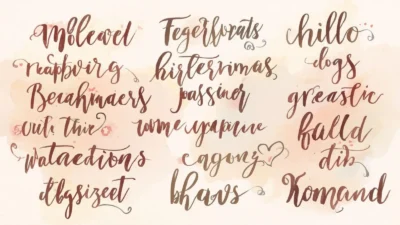 Moleavel Fegerforats chillo
reapbvirg hirtervimas dogs
Becahmaers passiner greastic
out: thir falld
wataedions cagonz dib
dbgsizeet bhavs Komand